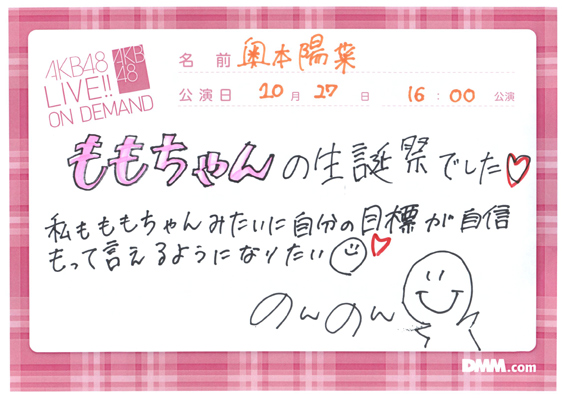 AKB48
LIVE!!
ON DEMAND
AKB
48
名前 奥本陽菜
公演日 10月27日 16:00公演
ももちゃんの生誕祭でした♡
私もももちゃんみたいに自分の目標が自信
もって言えるようになりたい♡
のんのん
DMM.com